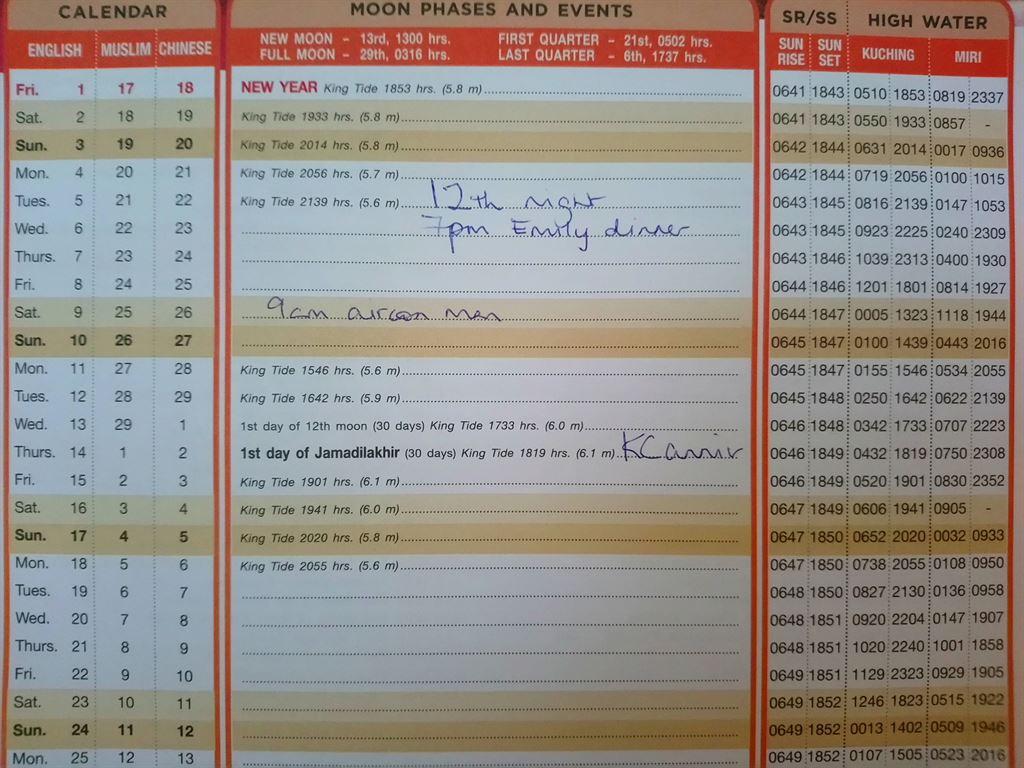 CALENDAR MOON PHASES AND EVENTS SR/SS HIGH WATER
ENGLISH MUSLIM CHINESE NEW MOON - 13rd, 1300 hrs. FIRST QUARTER - 21st, 0502 hrs. SUN RISE SUN SET KUCHING MIRI
FULL MOON - 29th, 0316 hrs. LAST QUARTER - 6th, 1737 hrs.
Fri. 1 17 18 NEW YEAR King Tide 1853 hrs. (5.8 m) 0641 1843 0510 1853 0819 2337
Sat. 2 18 19 King Tide 1933 hrs. (5.8 m) 0641 1843 0550 1933 0857 -
Sun. 3 19 20 King Tide 2014 hrs. (5.8 m) 0642 1844 0631 2014 0017 0936
Mon. 4 20 21 King Tide 2056 hrs. (5.7 m) 0642 1844 0719 2056 0100 1015
Tues. 5 21 22 King Tide 2139 hrs. (5.6 m) 12th night 0643 1845 0816 2139 0147 1053
Wed. 6 22 23 7pm Emily dinner 0643 1845 0923 2225 0240 2309
Thurs. 7 23 24 0643 1846 1039 2313 0400 1930
Fri. 8 24 25 0644 1846 1201 1801 0814 1927
Sat. 9 25 26 9am aircon man 0644 1847 0005 1323 1118 1944
Sun. 10 26 27 0645 1847 0100 1439 0443 2016
Mon. 11 27 28 King Tide 1546 hrs. (5.6 m) 0645 1847 0155 1546 0534 2055
Tues. 12 28 29 King Tide 1642 hrs. (5.9 m) 0645 1848 0250 1642 0622 2139
Wed. 13 29 1 1st day of 12th moon (30 days) King Tide 1733 hrs. (6.0 m) 0646 1848 0342 1733 0707 2223
Thurs. 14 1 2 1st day of Jamadilakhir (30 days) King Tide 1819 hrs. (6.1 m) KC 0646 1849 0432 1819 0750 2308
Fri. 15 2 3 King Tide 1901 hrs. (6.1 m) 0646 1849 0520 1901 0830 2352
Sat. 16 3 4 King Tide 1941 hrs. (6.0 m) 0647 1849 0606 1941 0905 -
Sun. 17 4 5 King Tide 2020 hrs. (5.8 m) 0647 1850 0652 2020 0032 0933
Mon. 18 5 6 King Tide 2055 hrs. (5.6 m) 0647 1850 0738 2055 0108 0950
Tues. 19 6 7 0648 1850 0827 2130 0136 0958
Wed. 20 7 8 0648 1851 0920 2204 0147 1907
Thurs. 21 8 9 0648 1851 1020 2240 1001 1858
Fri. 22 9 10 0649 1851 1129 2323 0929 1905
Sat. 23 10 11 0649 1852 1246 1823 0515 1922
Sun. 24 11 12 0649 1852 0013 1402 0509 1946
Mon. 25 12 13 0649 1852 0107 1505 0523 2016